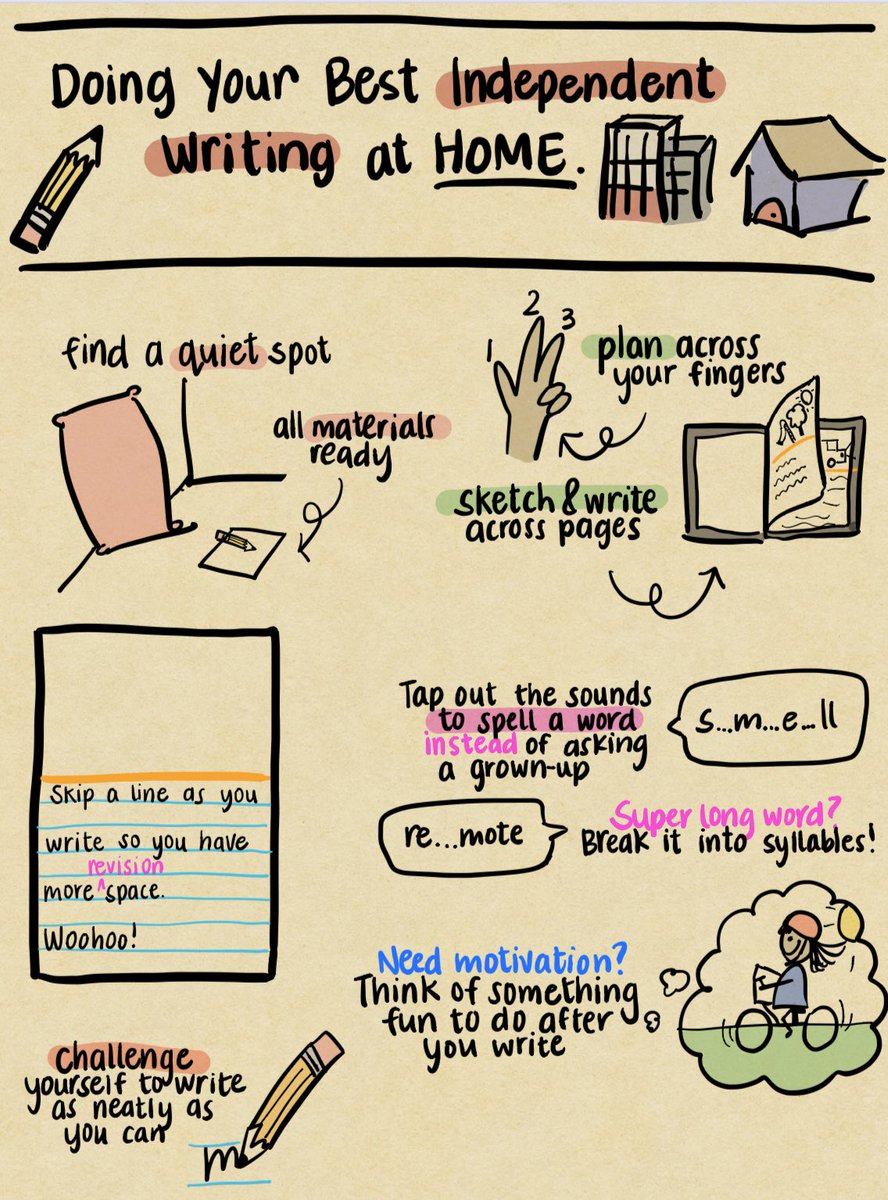 Doing Your Best Independent
Writing at HOME.
find a quiet spot
all materials
ready
1 2 3
plan across
your fingers
sketch & write
across pages
Skip a line as you
write so you have
revision
more ^ space.
Woohoo!
Tap out the sounds
to spell a word
instead of asking
a grown-up
s...m...e...ll
re...mote
Super long word?
Break it into syllables!
Need motivation?
Think of something
fun to do after
you write
challenge
yourself to write
as neatly as
you can
m